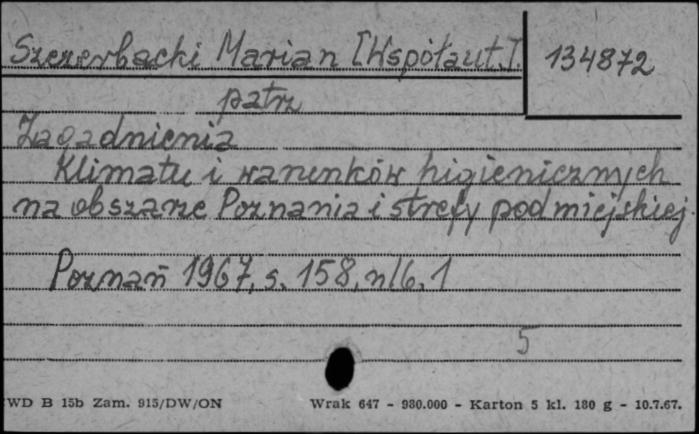 Szczerbacki Marian [Współaut.]. 134872
patrz
Zagadnienia
Klimatu i warunków higienicznych
na obszarze Poznania i strefy podmiejskiej
Poznań 1967, s. 158, nlb. 1
5
WD B 15b Zam. 915/DW/ON Wrak 647 - 980.000 - Karton 5 kl. 180 g - 10.7.67.